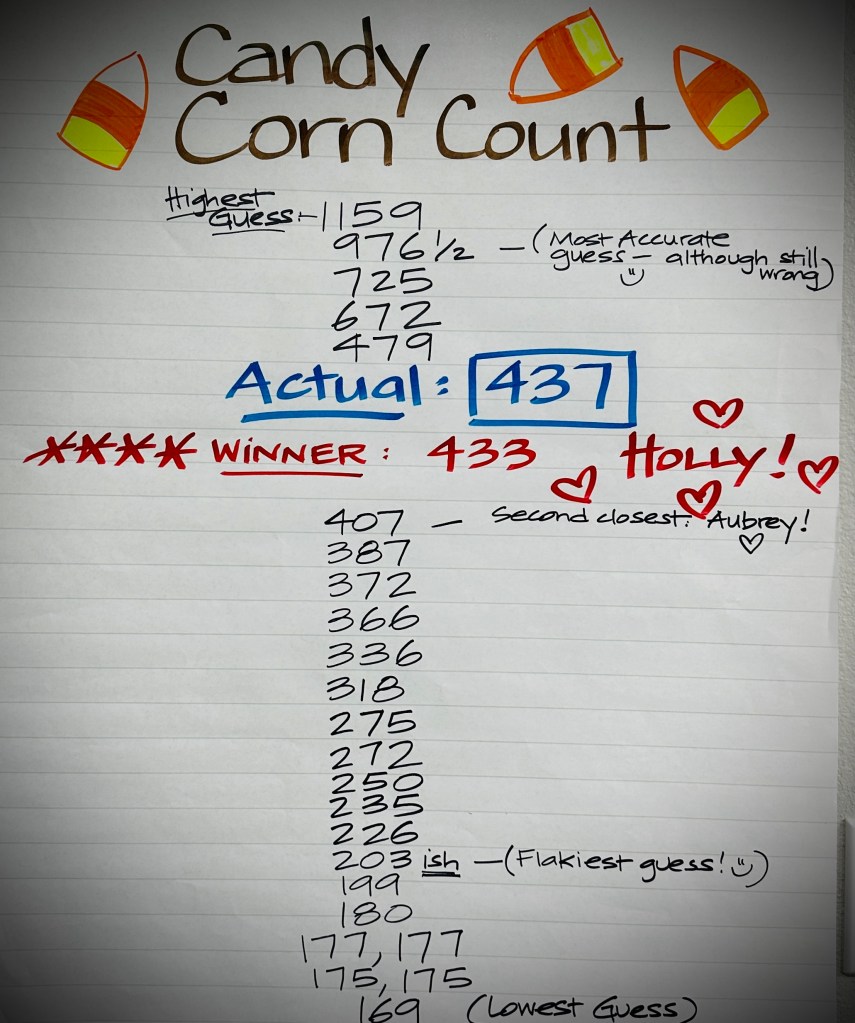 Candy
Corn Count
Highest
Guess:- 1159
976 1/2 - (Most Accurate
guess - although still
wrong)
725
672
479
Actual: 437
**** WINNER: 433 HOLLY!
407 - Second closest: Aubrey!
387
372
366
336
318
275
272
250
235
226
203 ish - (Flakiest guess!)
199
180
177, 177
175, 175
169 (Lowest Guess)